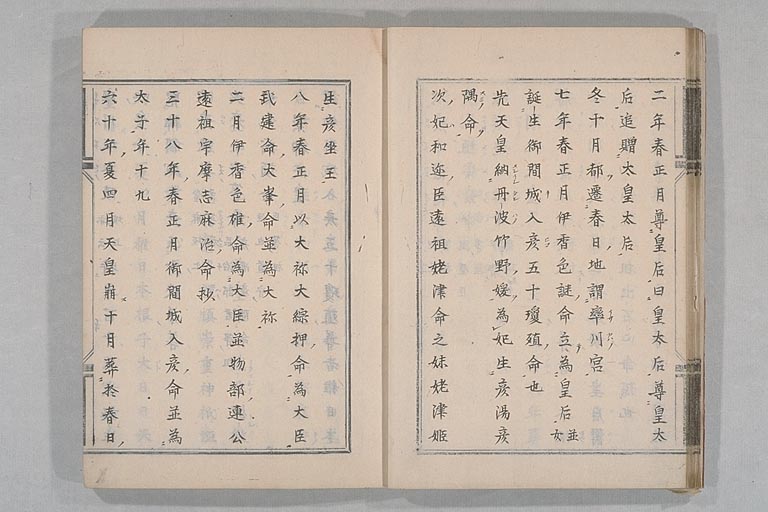 二年春正月尊皇后曰皇太后尊皇太
后追贈太皇太后
冬十月都遷春日地謂率川宮
七年春正月伊香色謎命立為皇后並女
誕生御間城入彦五十瓊殖命也
先天皇納丹波竹野媛為妃生彦湯彦
隅命
次妃和迩臣遠祖姥津命之妹姥津姫
生彦坐王
八年春正月以大祢大綜押命為大臣
武建命大峯命並為大祢
二月伊香色雄命為大臣並物部連公
遠祖宇摩志麻治命抄
三十八年春正月御間城入彦命並為
太子年十九
六十年夏四月天皇崩十月葬於春日